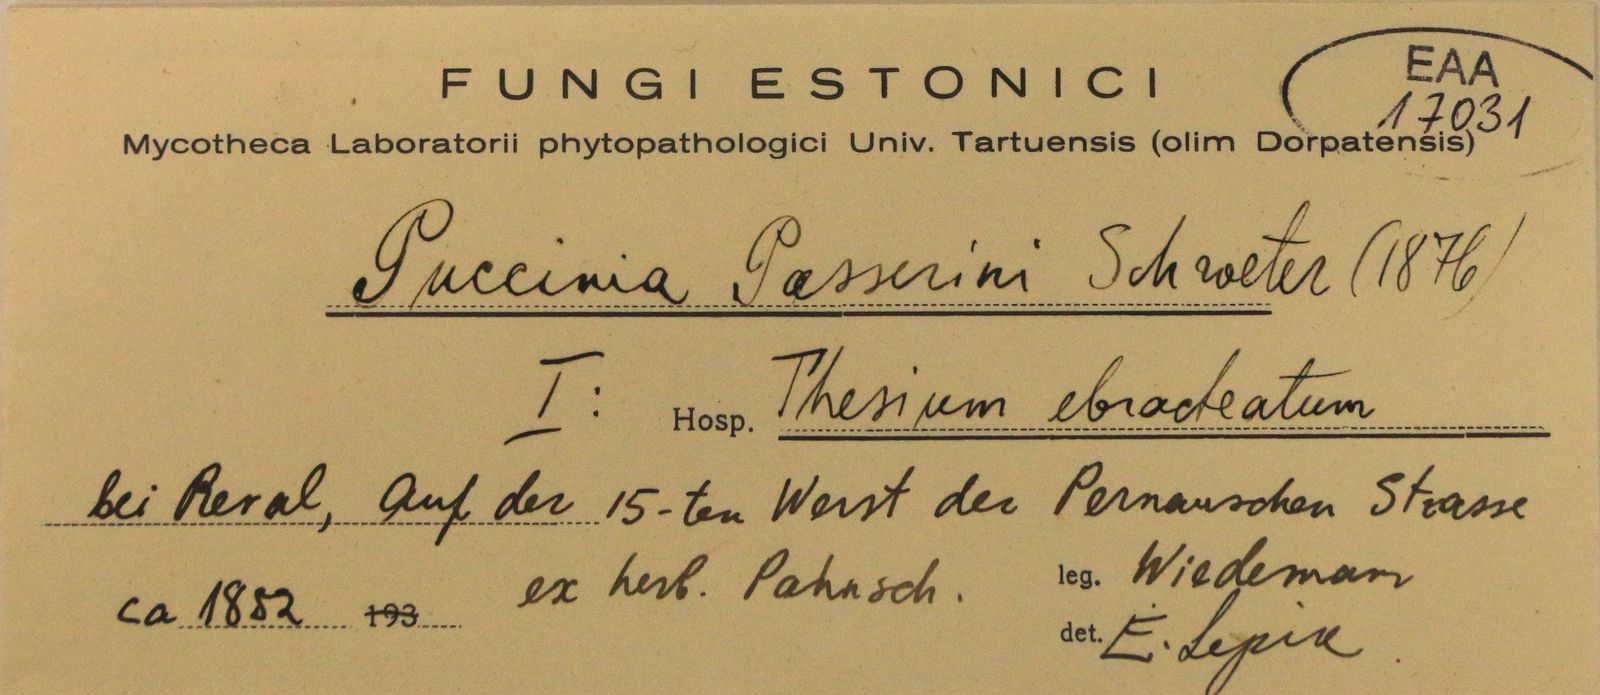 FUNGI ESTONICI
EAA
17031
Mycotheca Laboratorii phytopathologici Univ. Tartuensis (olim Dorpatensis)
Puccinia Passerini Schroeter (1876)
I: Hosp. Thesium ebracteatum
bei Reval, Auf der 15-ten Werst der Pernauschen Strasse
ca 1852 193 ex herb. Pahnsch. leg. Wiedemann
det. E. Lepik